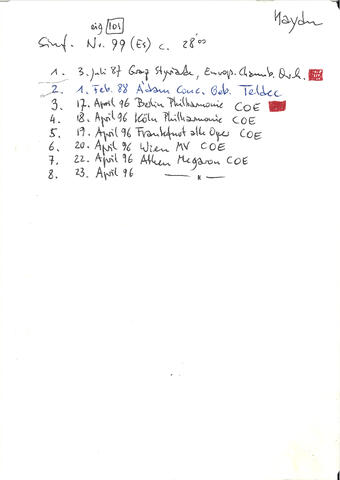 Haydn
eig 101
Sinf. Nr. 99 (Es) c. 28'00
1. 3. Juli 87 Graz Styriarte, Europ. Chamb. Orch.
2. 1. Feb. 88 Adam Conc. Geb. Teldec
3. 17. April 96 Berlin Philharmonie COE
4. 18. April 96 Köln Philharmonie COE
5. 19. April 96 Frankfurt alte Oper COE
6. 20. April 96 Wien MV COE
7. 22. April 96 Athen Megaron COE
8. 23. April 96 — " —